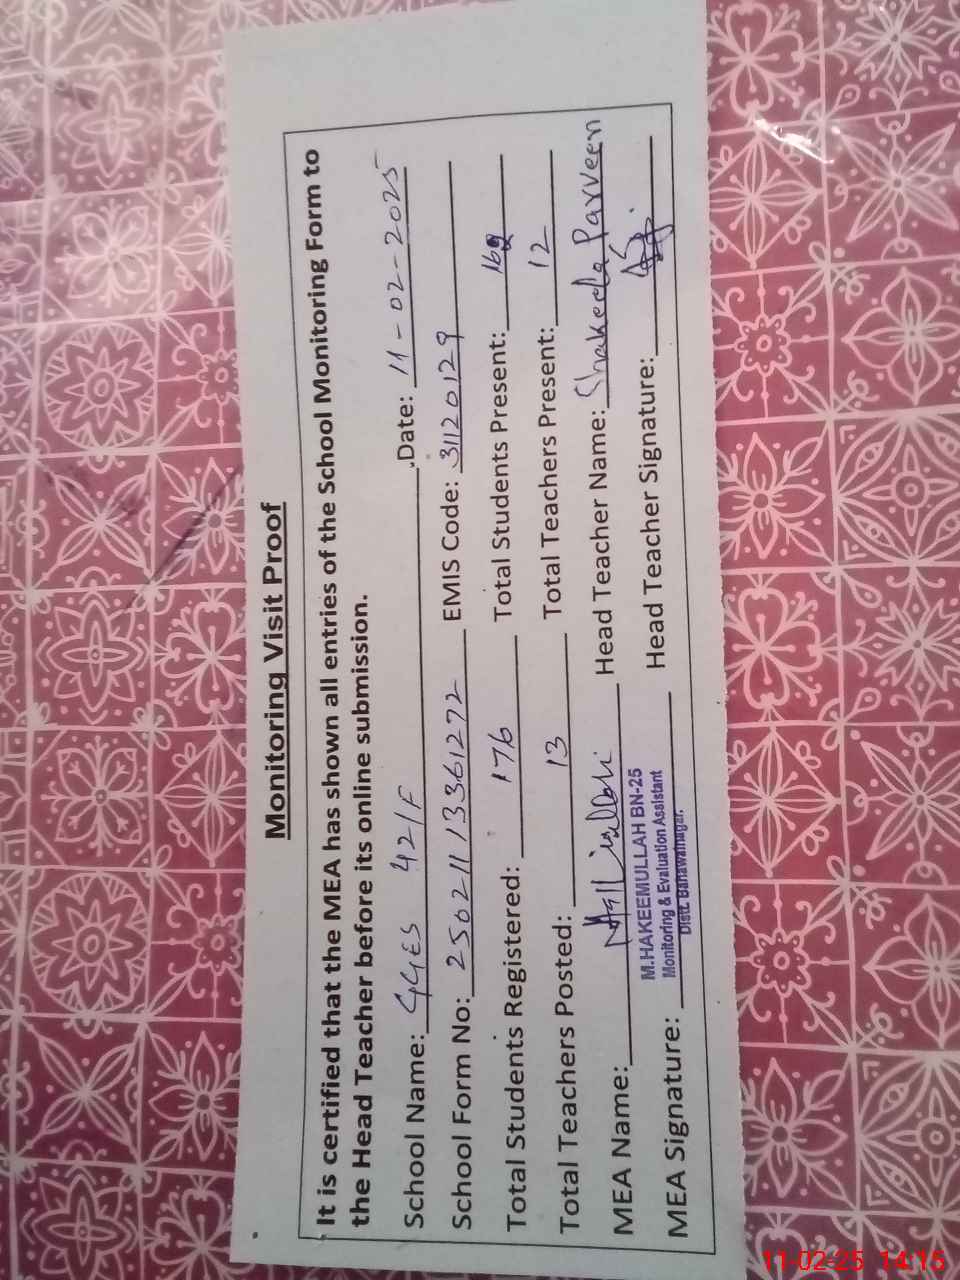 Monitoring Visit Proof
It is certified that the MEA has shown all entries of the School Monitoring Form to
the Head Teacher before its online submission.
School Name: GGES 42/F Date: 11-02-2025
School Form No: 25021113361272 EMIS Code: 31120129
Total Students Registered: 176 Total Students Present:
Total Teachers Posted: 13 Total Teachers Present: 12
MEA Name: Head Teacher Name: Shakeela Parveen
M.HAKEEMULLAH BN-25
Monitoring & Evaluation Assistant
Distt. Bahawalnagar.
MEA Signature: Head Teacher Signature:
11-02-25 14:15